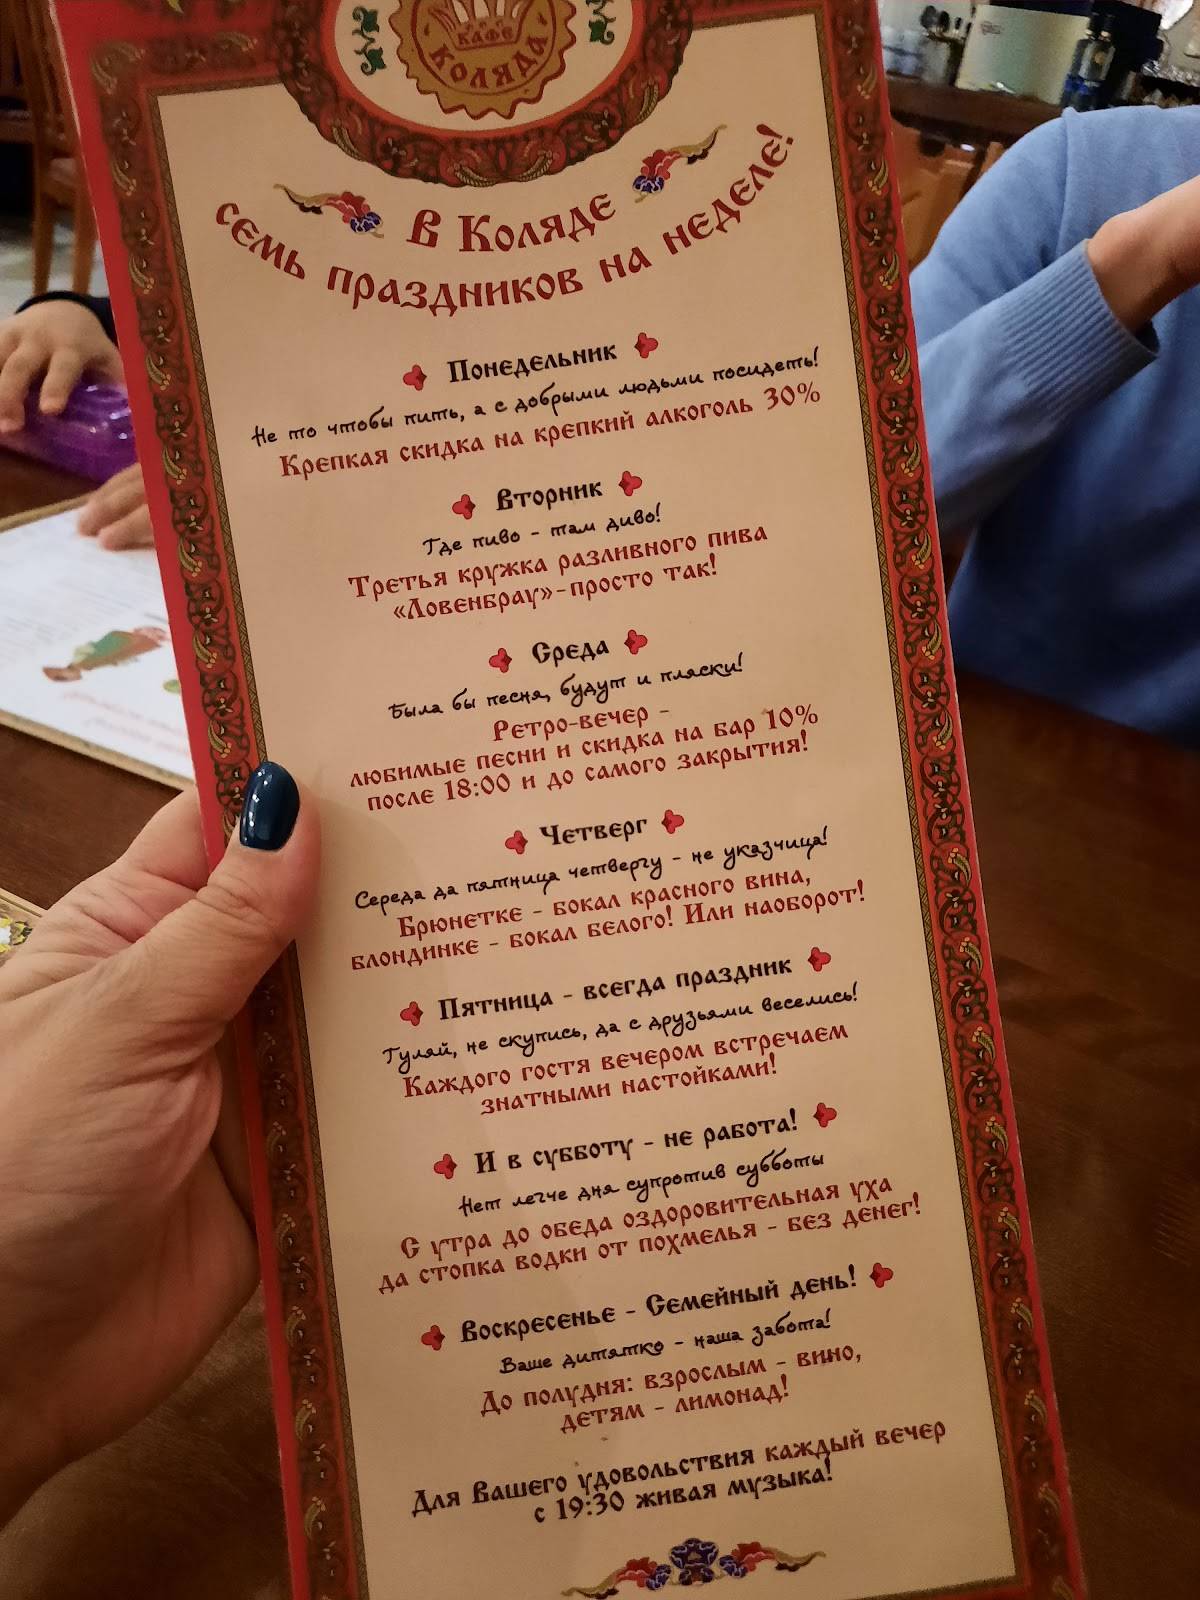 КАФЕ
КОЛЯДА
В Коляде
семь праздников на неделе!
Понедельник
Не то чтобы пить, а с добрыми людьми посидеть!
Крепкая скидка на крепкий алкоголь 30%
Вторник
Где пиво - там диво!
Третья кружка разливного пива
«Ловенбрау»-просто так!
Среда
Была бы песня, будут и пляски!
Ретро-вечер -
любимые песни и скидка на бар 10%
после 18:00 и до самого закрытия!
Четверг
Середа да пятница четвергу - не указчица!
Брюнетке - бокал красного вина,
блондинке - бокал белого! Или наоборот!
Пятница - всегда праздник
Гуляй, не скупись, да с друзьями веселись!
Каждого гостя вечером встречаем
знатными настойками!
И в субботу - не работа!
Нет легче дня супротив субботы
С утра до обеда оздоровительная уха
да стопка водки от похмелья - без денег!
Воскресенье - Семейный день!
Ваше дитятко - наша забота!
До полудня: взрослым - вино,
детям - лимонад!
Для Вашего удовольствия каждый вечер
с 19:30 живая музыка!